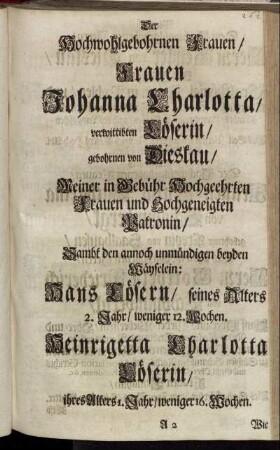 Der
Hochwohlgebohrnen Frauen/
Frauen
Johanna Charlotta/
verwittibten Löserin/
gebohrnen von Dieskau/
Meiner in Gebühr Hochgeehrten
Frauen und Hochgeneigten
Patronin/
Sambt den annoch unmündigen beyden
Wäyselein:
Hans Lösern/ seines Alters
2. Jahr/ weniger 12. Wochen.
Heinrigetta Charlotta
Löserin/
ihres Alters 1. Jahr/ weniger 16. Wochen.
A 2 Wie